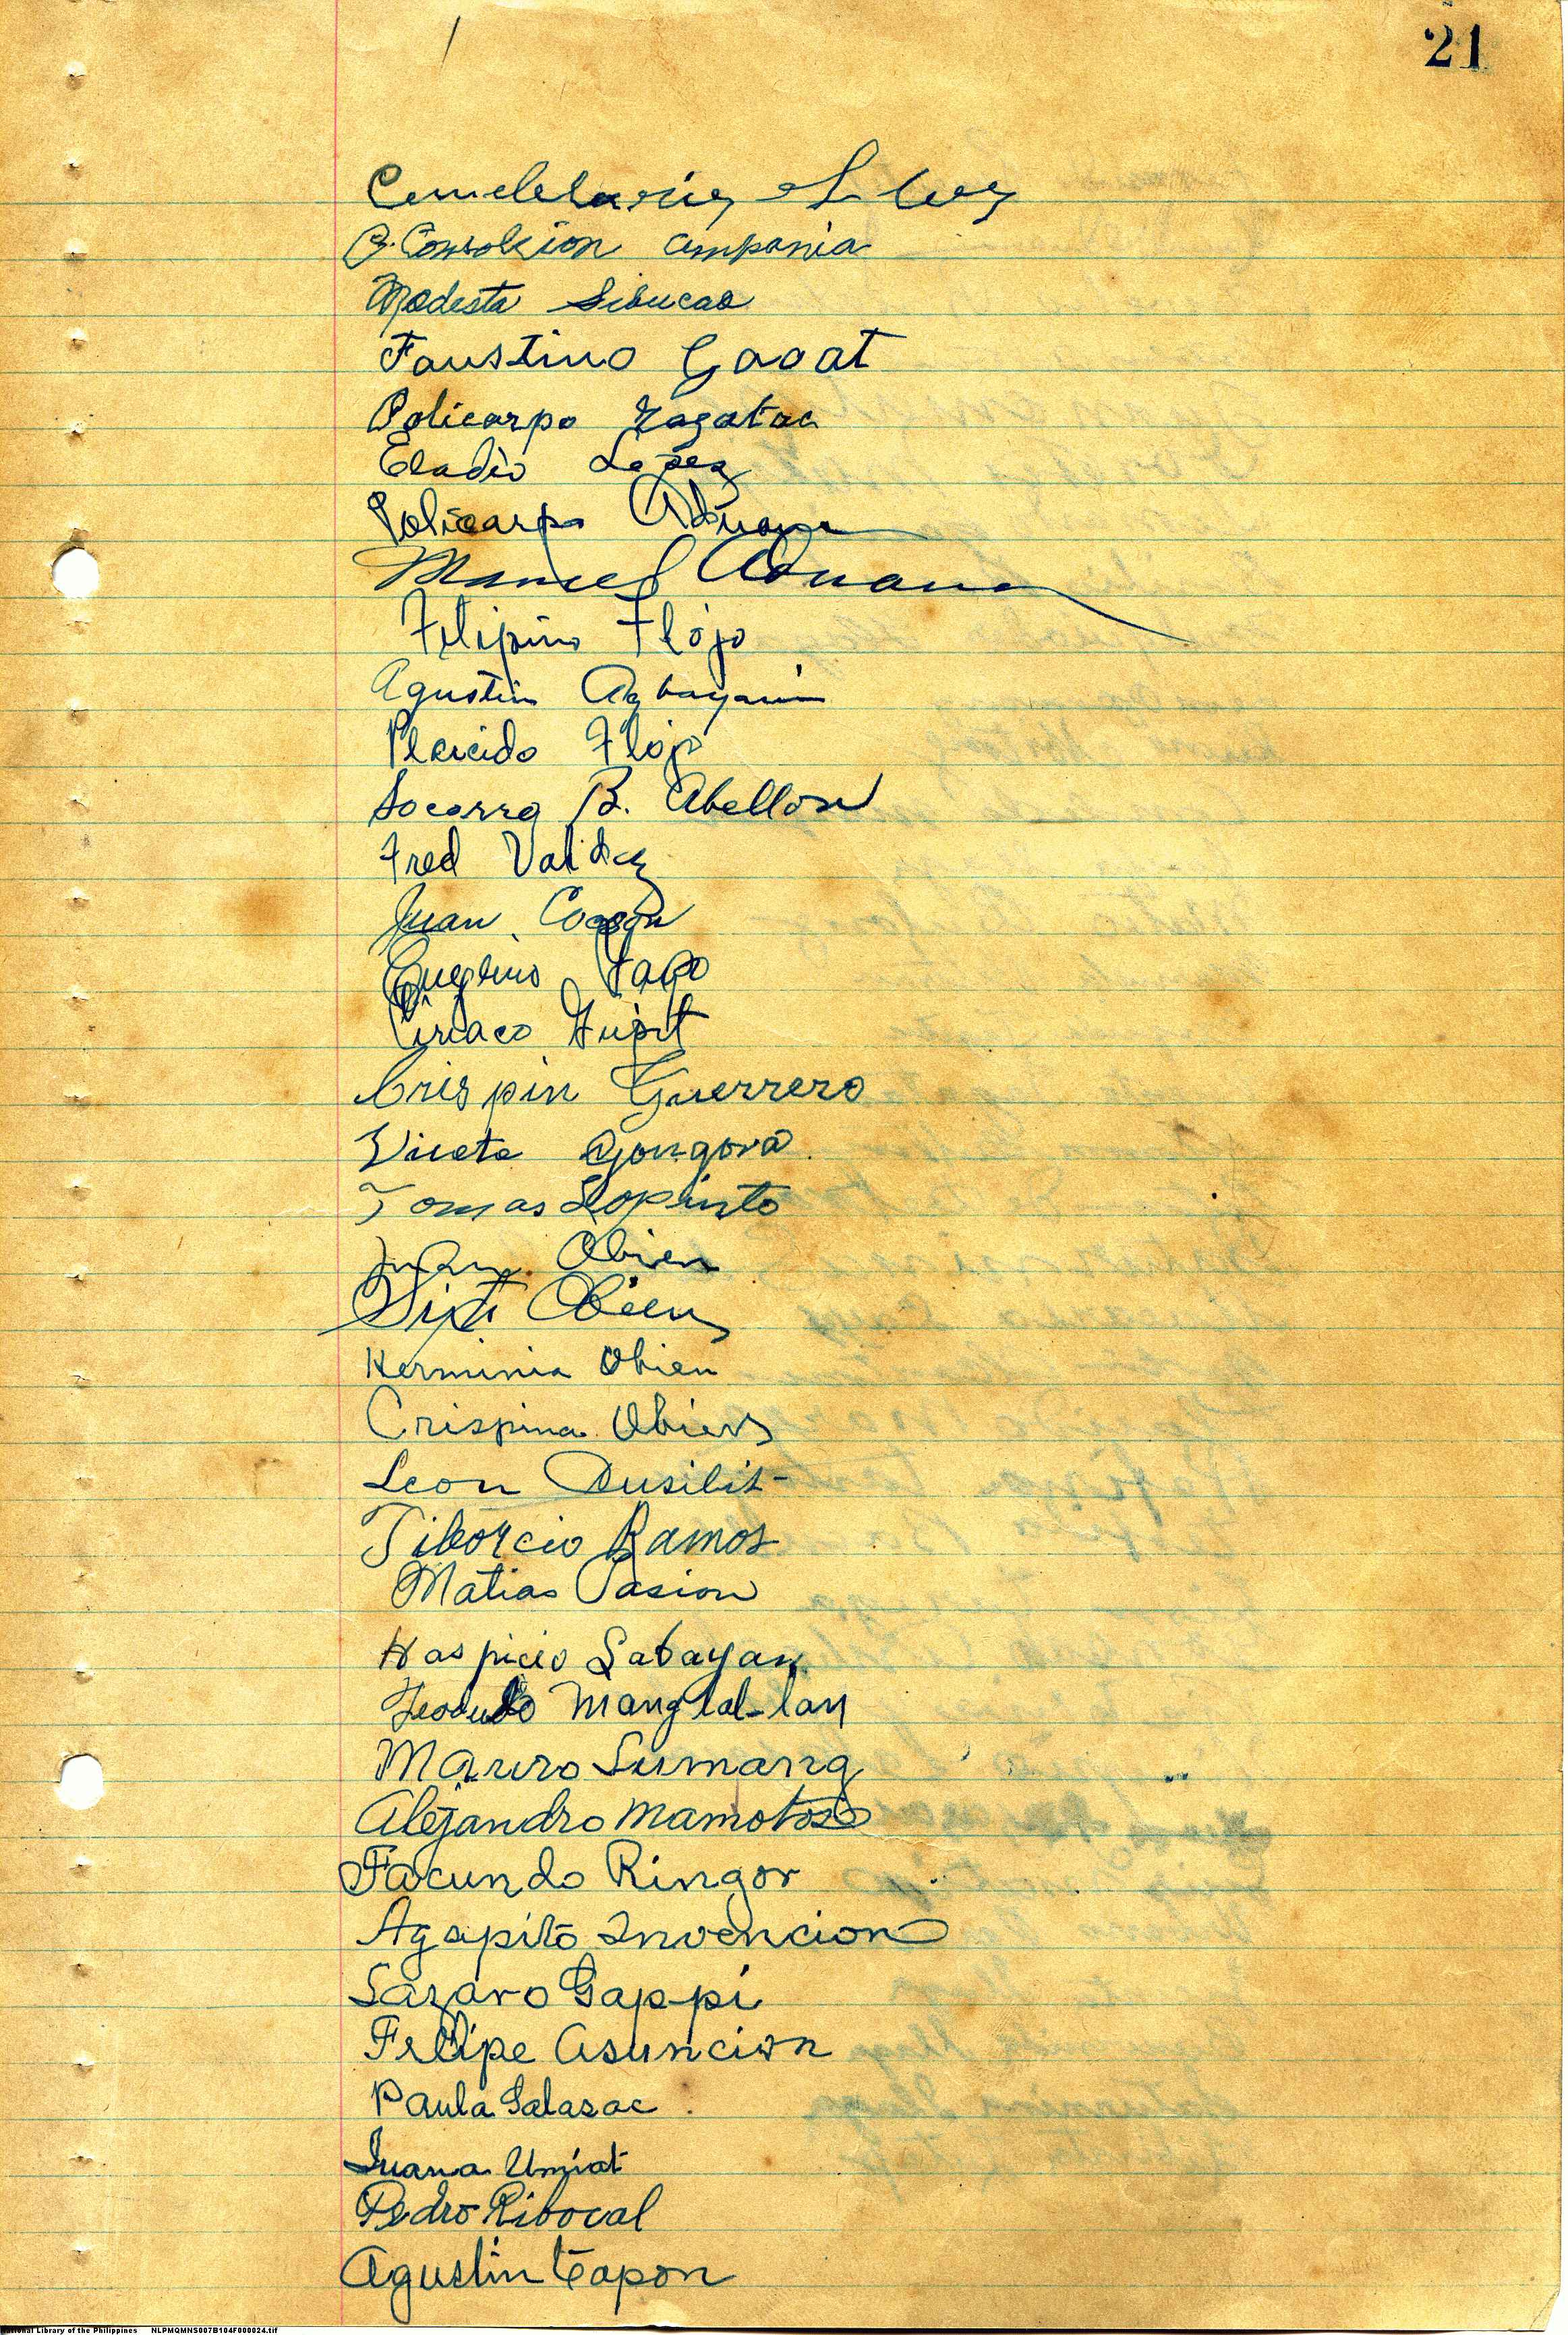 21
Consolcion Campania
Modesta Sibucao
Faustino Gaoat
Policarpo Zagatac
Eladio Lopez
Policarpo Aduana
Manuel Aduana
Filipino Flojo
Agustin Agbayani
Placido Flojo
Socorro B. Abellon
Fred Valdez
Juan
Eugenio
Ciriaco
Crispin Guerrero
Viceta Gongora
Tomas Lopinto
Juan Obien
Sixto Obien
Herminia Obien
Crispina Obien
Leon Dusilit
Tiborcio Ramos
Matias Pasion
Hospicio Sabayan
Teodulo Manglal-lan
Mauro Sumang
Alejandro Mamotos
Facundo Ringor
Agapito Invencion
Lazaro Gappi
Felipe Asuncion
Paula Salazac
Juana Umiat
Pedro Ribocal
Agustin Capon
National Library of the Philippines NLPMQMNS007B104F000024.tif